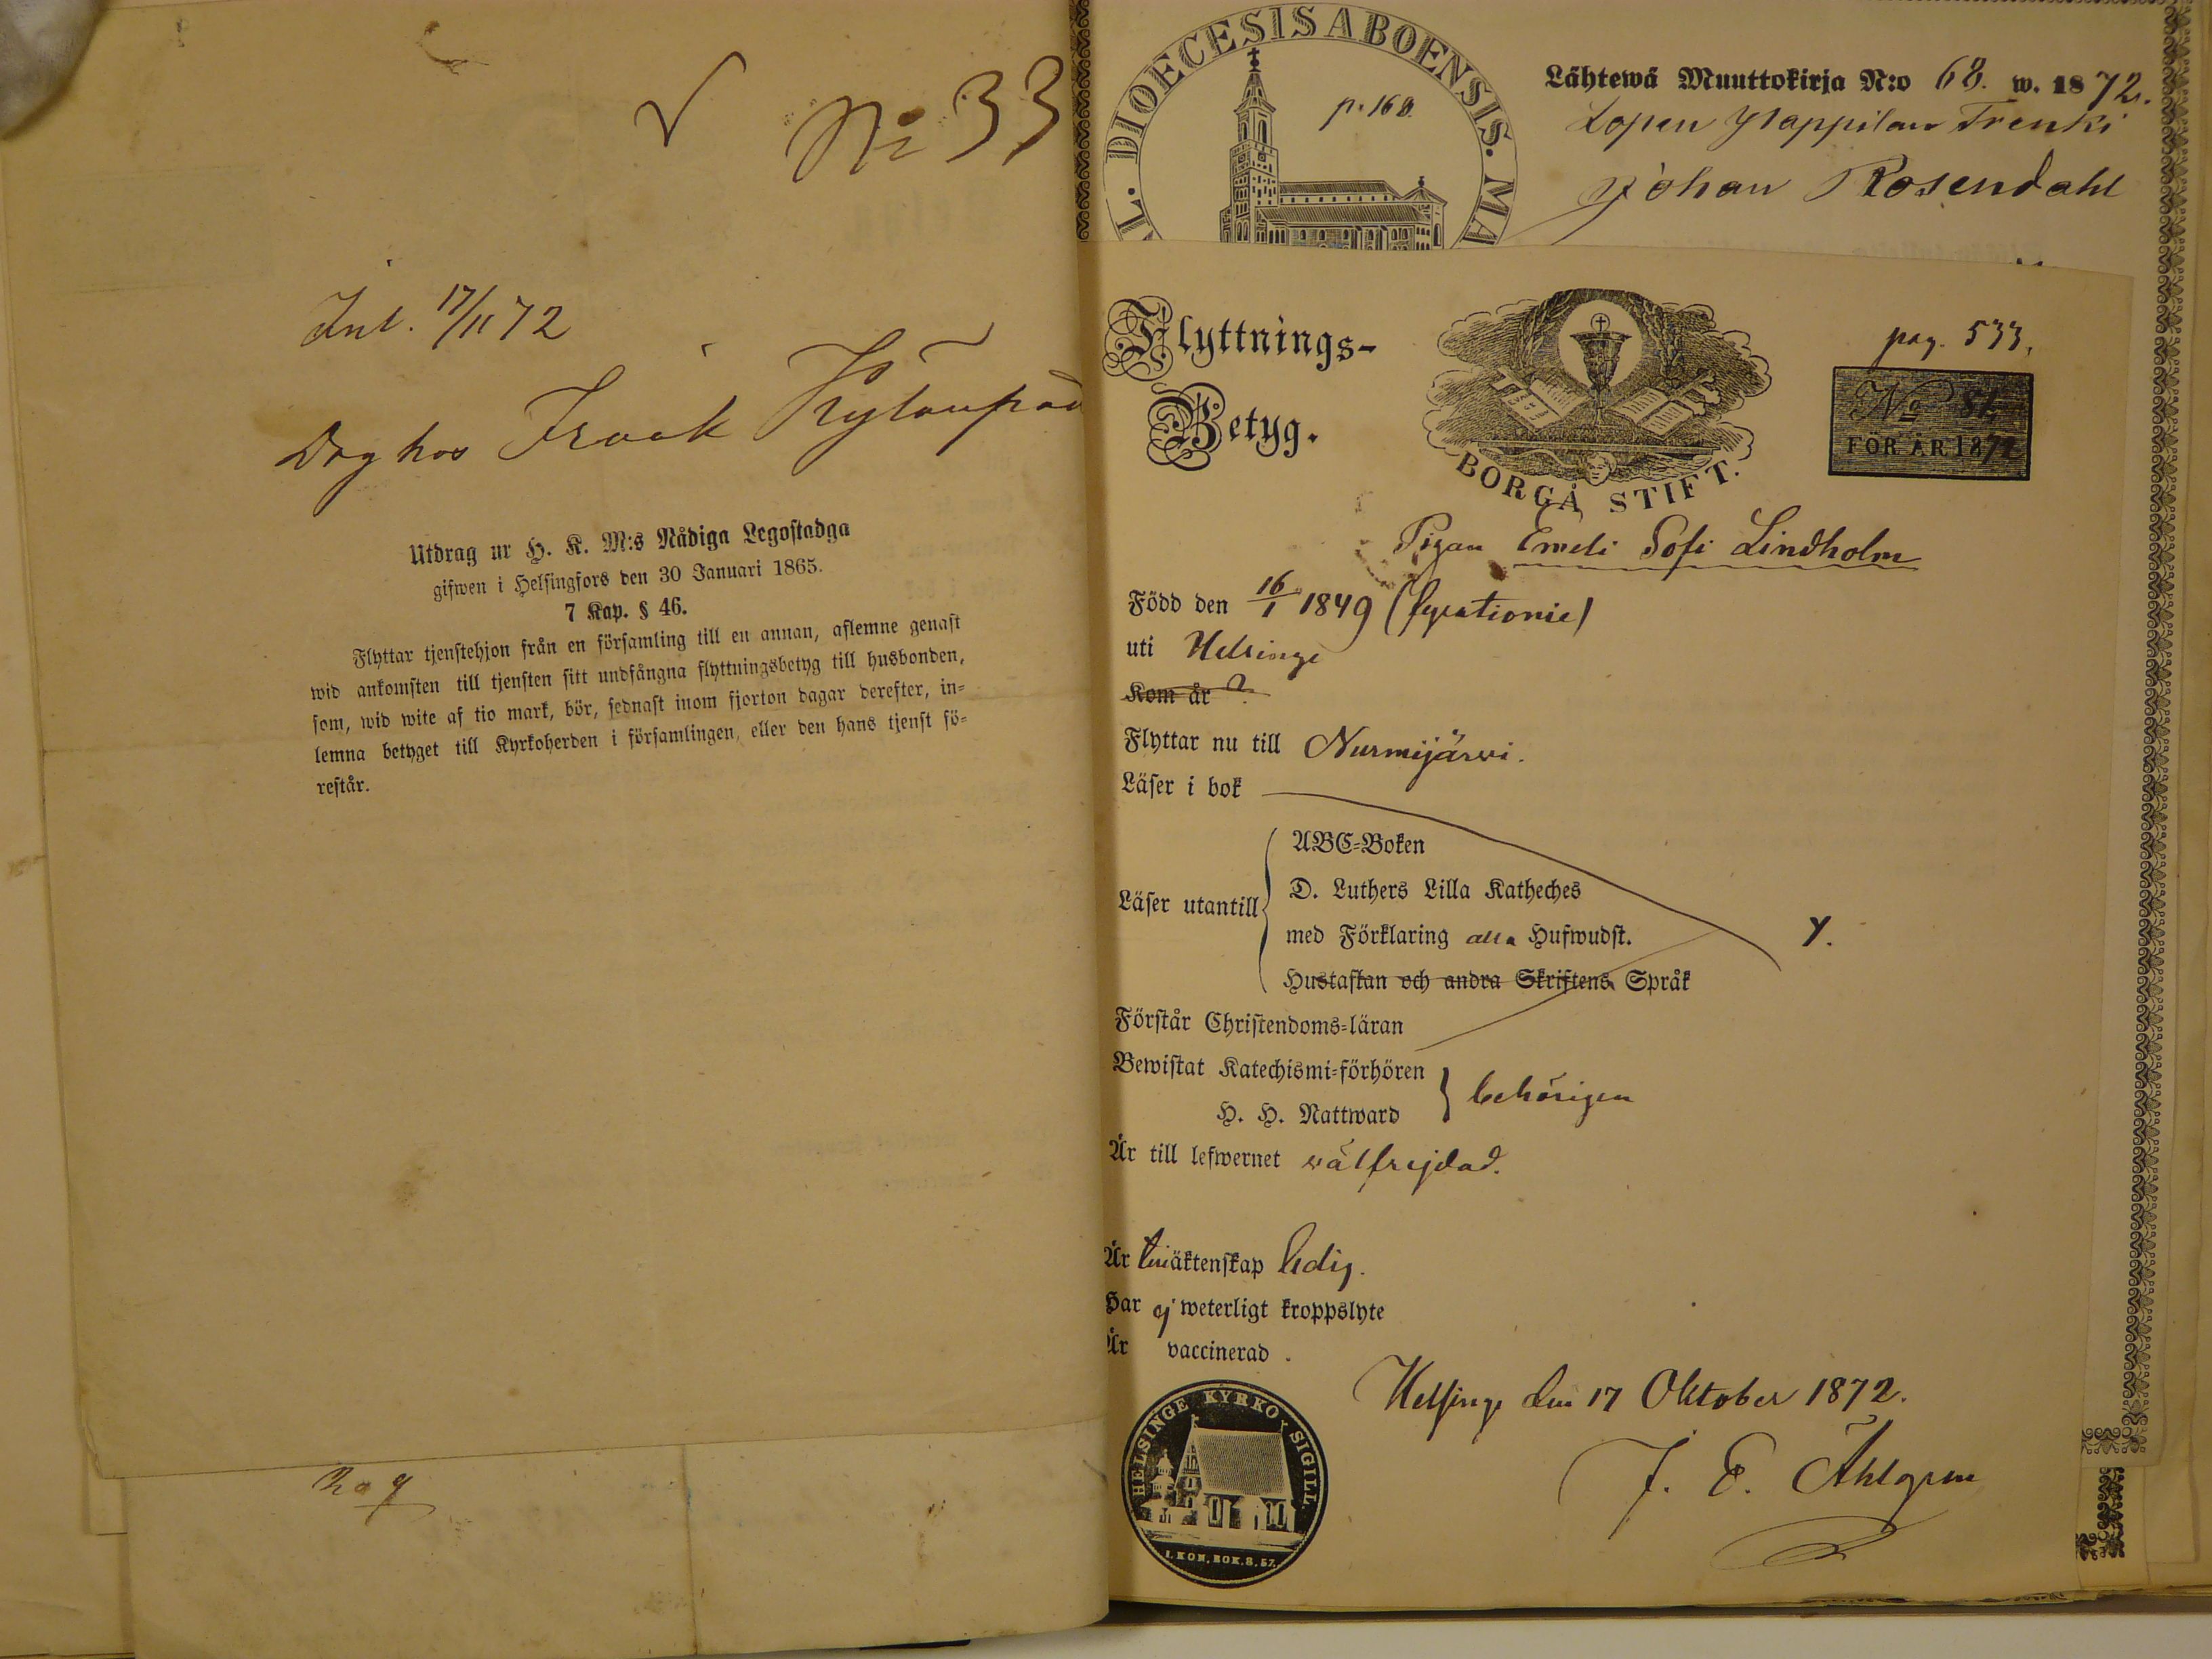 √ No 33
Inl. 17/11 72
Dag hos Isaak
Utdrag ur H. K. M:s Nådiga Legostadga
gifwen i Helsingfors den 30 Januari 1865.
7 Kap. § 46.
Flyttar tjenstehjon från en församling till en annan, aflemne genast
wid ankomsten till tjensten sitt undfångna flyttningsbetyg till husbonden,
som, wid wite af tio mark, bör, sednast inom fjorton dagar derefter, in=
lemna betyget till Kyrkoherden i församlingen, eller den hans tjenst fö=
restår.
L. DIOECESIS ABOENSIS. MA
p. 168.
Lähtewä Muuttokirja N:o 68. w. 1872.
Lopen Trenki
Johan Rosendahl
Flyttnings-
Betyg.
BORGÅ STIFT.
pag. 533.
No 81
FÖR ÅR 1872
Pigan Emeli Sofi Lindholm
Född den 16/1 1849
uti Helsinge
Kom år ?
Flyttar nu till Nurmijärvi.
Läser i bok
Läser utantill
ABC=Boken
D. Luthers Lilla Katheches
med Förklaring alla Hufwudst.
Hustaflan och andra Skriftens Språk
Y.
Förstår Christendoms=läran
Bewistat Katechismi=förhören
H. H. Nattward
behörigen
Är till lefwernet välfrejdad.
Är till äktenskap ledig.
Har ej weterligt kroppslyte
Är vaccinerad.
Helsinge den 17 Oktober 1872.
J. E. Åhlgren
HELSINGE KYRKO SIGILL.
I. KON. BOK. 8. 57.